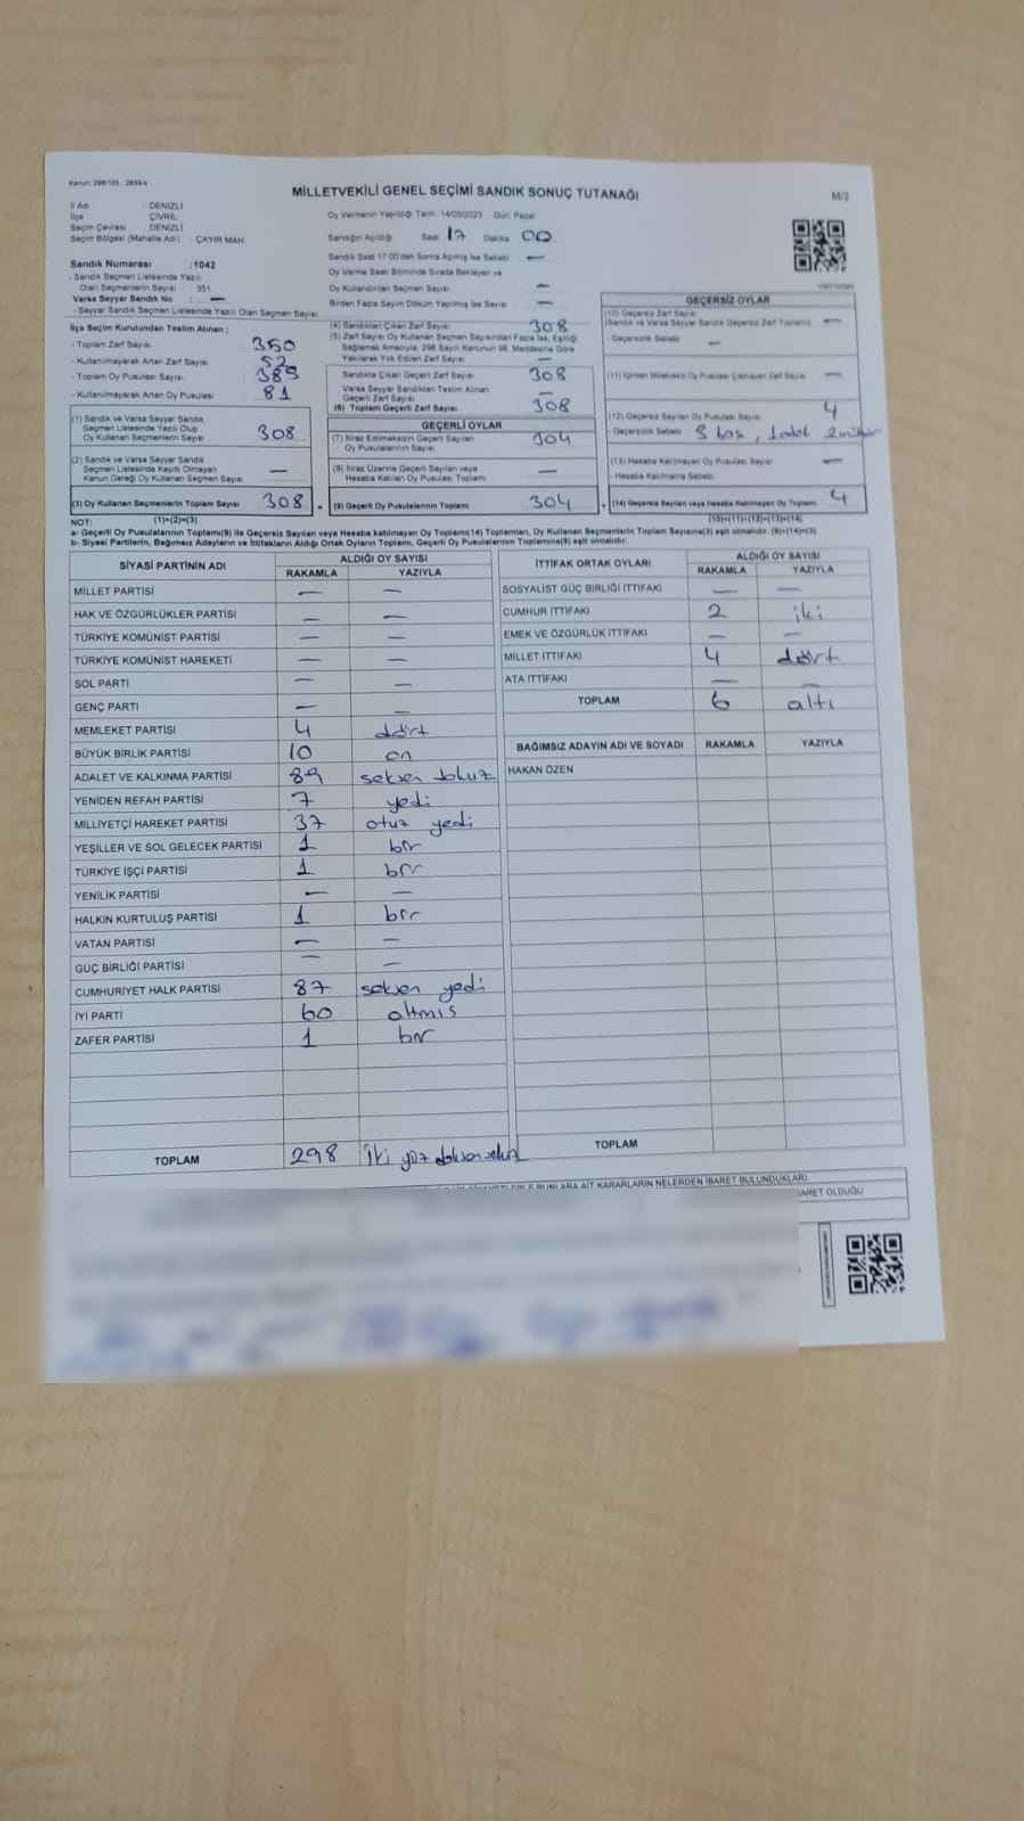 MİLLETVEKİLİ GENEL SEÇİMİ SANDIK SONUÇ TUTANAĞI
M/2
İl Adı : DENİZLİ
İlçe : ÇİVRİL
Seçim Çevresi : DENİZLİ
Seçim Bölgesi (Mahalle Adı) : ÇAYIR MAH
Oy Vermenin Yapıldığı Tarih: 14/05/2023 Gün: Pazar
Sandığın Açıldığı Saat 17 Dakika 00
Sandık Saat 17:00'den Sonra Açılmış İse Sebebi —
Oy Verme Saati Bitiminde Sırada Bekleyen ve
Oy Kullandırılan Seçmen Sayısı —
Birden Fazla Sayım Döküm Yapılmış İse Sayısı —
Sandık Numarası : 1042
- Sandık Seçmen Listesinde Yazılı
Olan Seçmenlerin Sayısı : 351
Varsa Seyyar Sandık No : —
- Seyyar Sandık Seçmen Listesinde Yazılı Olan Seçmen Sayısı
İlçe Seçim Kurulundan Teslim Alınan ;
- Toplam Zarf Sayısı 350
- Kullanılmayarak Artan Zarf Sayısı 52
- Toplam Oy Pusulası Sayısı 389
- Kullanılmayarak Artan Oy Pusulası 81
(1) Sandık ve Varsa Seyyar Sandık
Seçmen Listesinde Yazılı Olup
Oy Kullanan Seçmenlerin Sayısı 308
(2) Sandık ve Varsa Seyyar Sandık
Seçmen Listesinde Kaydı Olmayan
Kanun Gereği Oy Kullanan Seçmen Sayısı —
(3) Oy Kullanan Seçmenlerin Toplam Sayısı 308
(4) Sandıktan Çıkan Zarf Sayısı 308
(5) Zarf Sayısı Oy Kullanan Seçmen Sayısından Fazla İse, Eşitliği
Sağlamak Amacıyla, 298 Sayılı Kanunun 98. Maddesine Göre
Yakılarak Yok Edilen Zarf Sayısı —
Sandıkta Çıkan Geçerli Zarf Sayısı 308
Varsa Seyyar Sandıktan Teslim Alınan
Geçerli Zarf Sayısı —
(6) Toplam Geçerli Zarf Sayısı 308
GEÇERLİ OYLAR
(7) İtiraz Edilmeksizin Geçerli Sayılan
Oy Pusulalarının Sayısı 304
(8) İtiraz Üzerine Geçerli Sayılan veya
Hesaba Katılan Oy Pusulası Toplamı —
(9) Geçerli Oy Pusulalarının Toplamı 304
GEÇERSİZ OYLAR
(10) Geçersiz Zarf Sayısı
(Sandık ve Varsa Seyyar Sandık Geçersiz Zarf Toplamı) —
- Geçersizlik Sebebi —
(12) Geçersiz Sayılan Oy Pusulası Sayısı 4
- Geçersizlik Sebebi
(13) Hesaba Katılmayan Oy Pusulası Sayısı —
- Hesaba Katılmama Sebebi
(14) Geçersiz Sayılan veya Hesaba Katılmayan Oy Toplamı 4
NOT: (1)+(2)=(3) (10)+(11)+(12)+(13)=(14)
a- Geçerli Oy Pusulalarının Toplamı(9) ile Geçersiz Sayılan veya Hesaba katılmayan Oy Toplamı(14) Toplamları, Oy Kullanan Seçmenlerin Toplam Sayısına(3) eşit olmalıdır. (9)+(14)=(3)
b- Siyasi Partilerin, Bağımsız Adayların ve İttifakların Aldığı Ortak Oyların Toplamı, Geçerli Oy Pusulalarının Toplamına(9) eşit olmalıdır.
SİYASİ PARTİNİN ADI ALDIĞI OY SAYISI
RAKAMLA YAZIYLA
MİLLET PARTİSİ — —
HAK VE ÖZGÜRLÜKLER PARTİSİ — —
TÜRKİYE KOMÜNİST PARTİSİ — —
TÜRKİYE KOMÜNİST HAREKETİ — —
SOL PARTİ — —
GENÇ PARTİ — —
MEMLEKET PARTİSİ 4 dört
BÜYÜK BİRLİK PARTİSİ 10 on
ADALET VE KALKINMA PARTİSİ 89 seksen dokuz
YENİDEN REFAH PARTİSİ 7 yedi
MİLLİYETÇİ HAREKET PARTİSİ 37 otuz yedi
YEŞİLLER VE SOL GELECEK PARTİSİ 1 bir
TÜRKİYE İŞÇİ PARTİSİ 1 bir
YENİLİK PARTİSİ — —
HALKIN KURTULUŞ PARTİSİ 1 bir
VATAN PARTİSİ — —
GÜÇ BİRLİĞİ PARTİSİ — —
CUMHURİYET HALK PARTİSİ 87 seksen yedi
İYİ PARTİ 60 altmış
ZAFER PARTİSİ 1 bir
TOPLAM 298 iki yüz doksan sekiz
İTTİFAK ORTAK OYLARI ALDIĞI OY SAYISI
RAKAMLA YAZIYLA
SOSYALİST GÜÇ BİRLİĞİ İTTİFAKI — —
CUMHUR İTTİFAKI 2 iki
EMEK VE ÖZGÜRLÜK İTTİFAKI — —
MİLLET İTTİFAKI 4 dört
ATA İTTİFAKI — —
TOPLAM 6 altı
BAĞIMSIZ ADAYIN ADI VE SOYADI RAKAMLA YAZIYLA
HAKAN ÖZEN
TOPLAM
AİT KARARLARIN NELERDEN İBARET BULUNDUKLARI
OLDUĞU